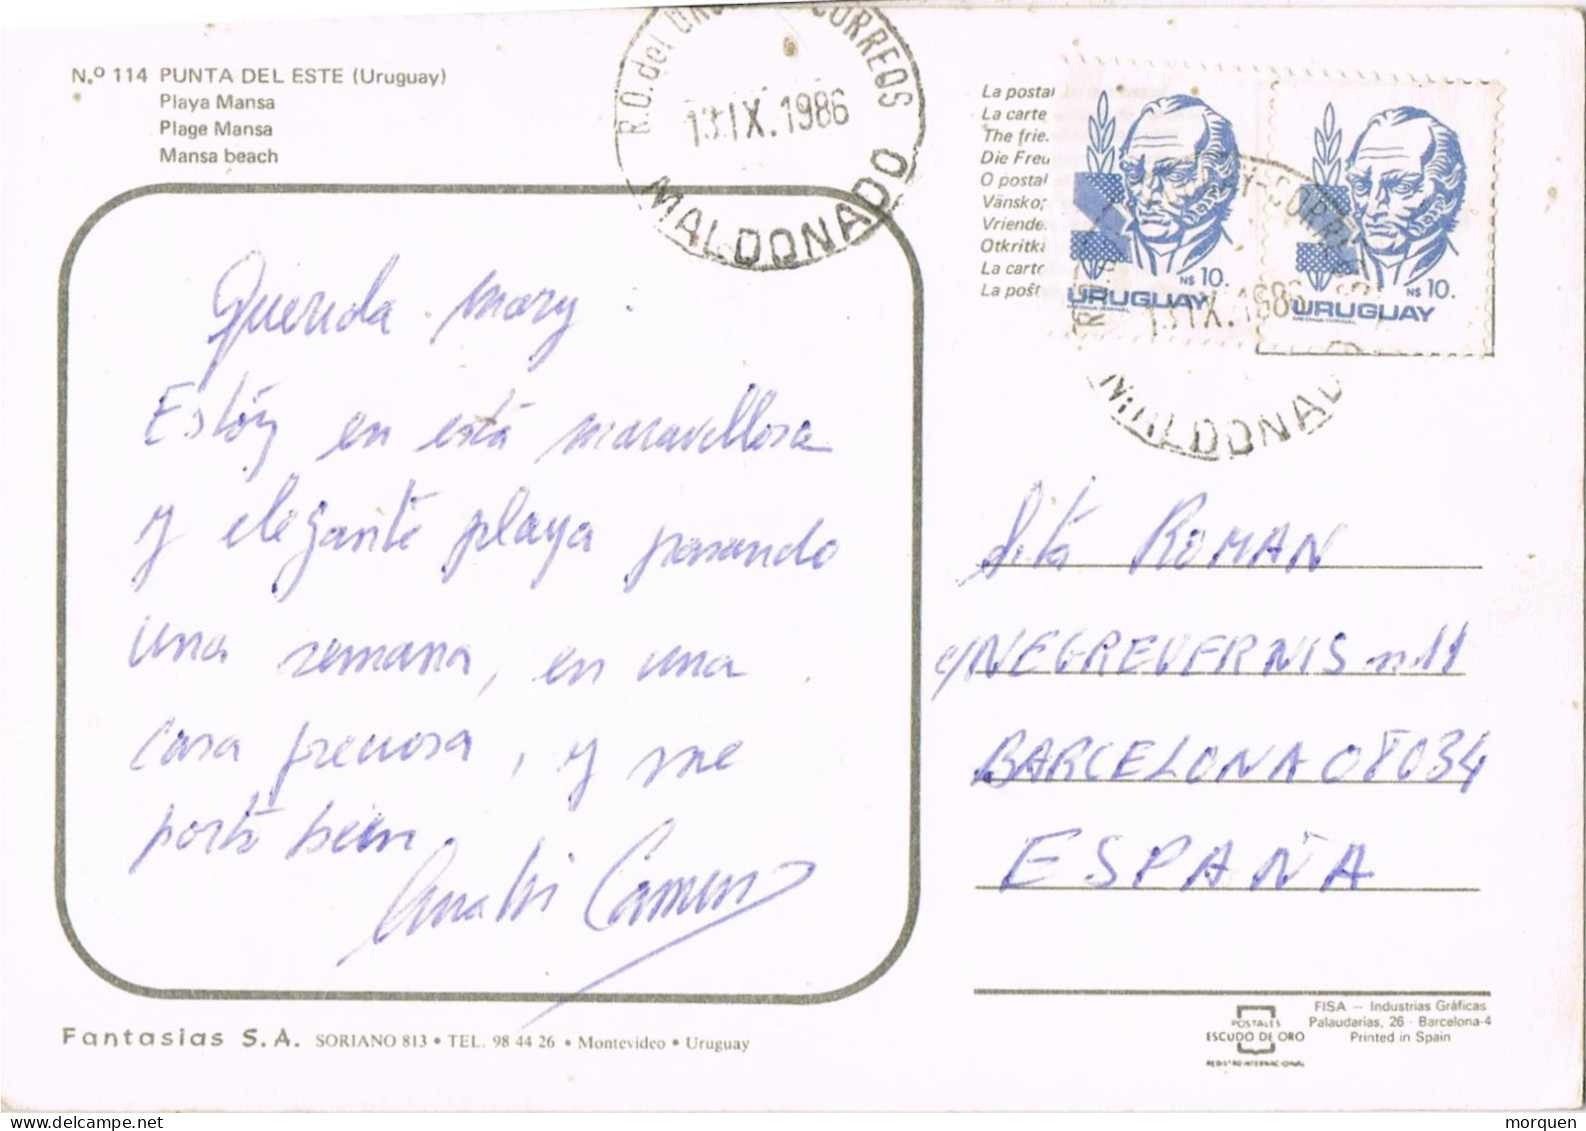 N.º 114 PUNTA DEL ESTE (Uruguay)
Playa Mansa
Plage Mansa
Mansa beach
R.O. del CORREOS
13 IX. 1986
MALDONADO
La postal
La carte
The frie
Die Freu
O postal
Vänskop
Vriende
Otkritki
La carte
La pošt
N$ 10.
URUGUAY
N$ 10.
URUGUAY
13 IX. 1986
MALDONAD
Querida Mary:
Estóy en está maravillosa
y elegante playa pasando
una semana, en una
casa preciosa, y me
porto bien.
Srta ROMAN
c/NEGREVERNIS n 11
BARCELONA 08034
ESPAÑA
Fantasias S.A. SORIANO 813 • TEL. 98 44 26 • Montevideo • Uruguay
POSTALES
ESCUDO DE ORO
REGISTRO INTERNACIONAL
FISA — Industrias Gráficas
Palaudarias, 26 - Barcelona-4
Printed in Spain
morquen